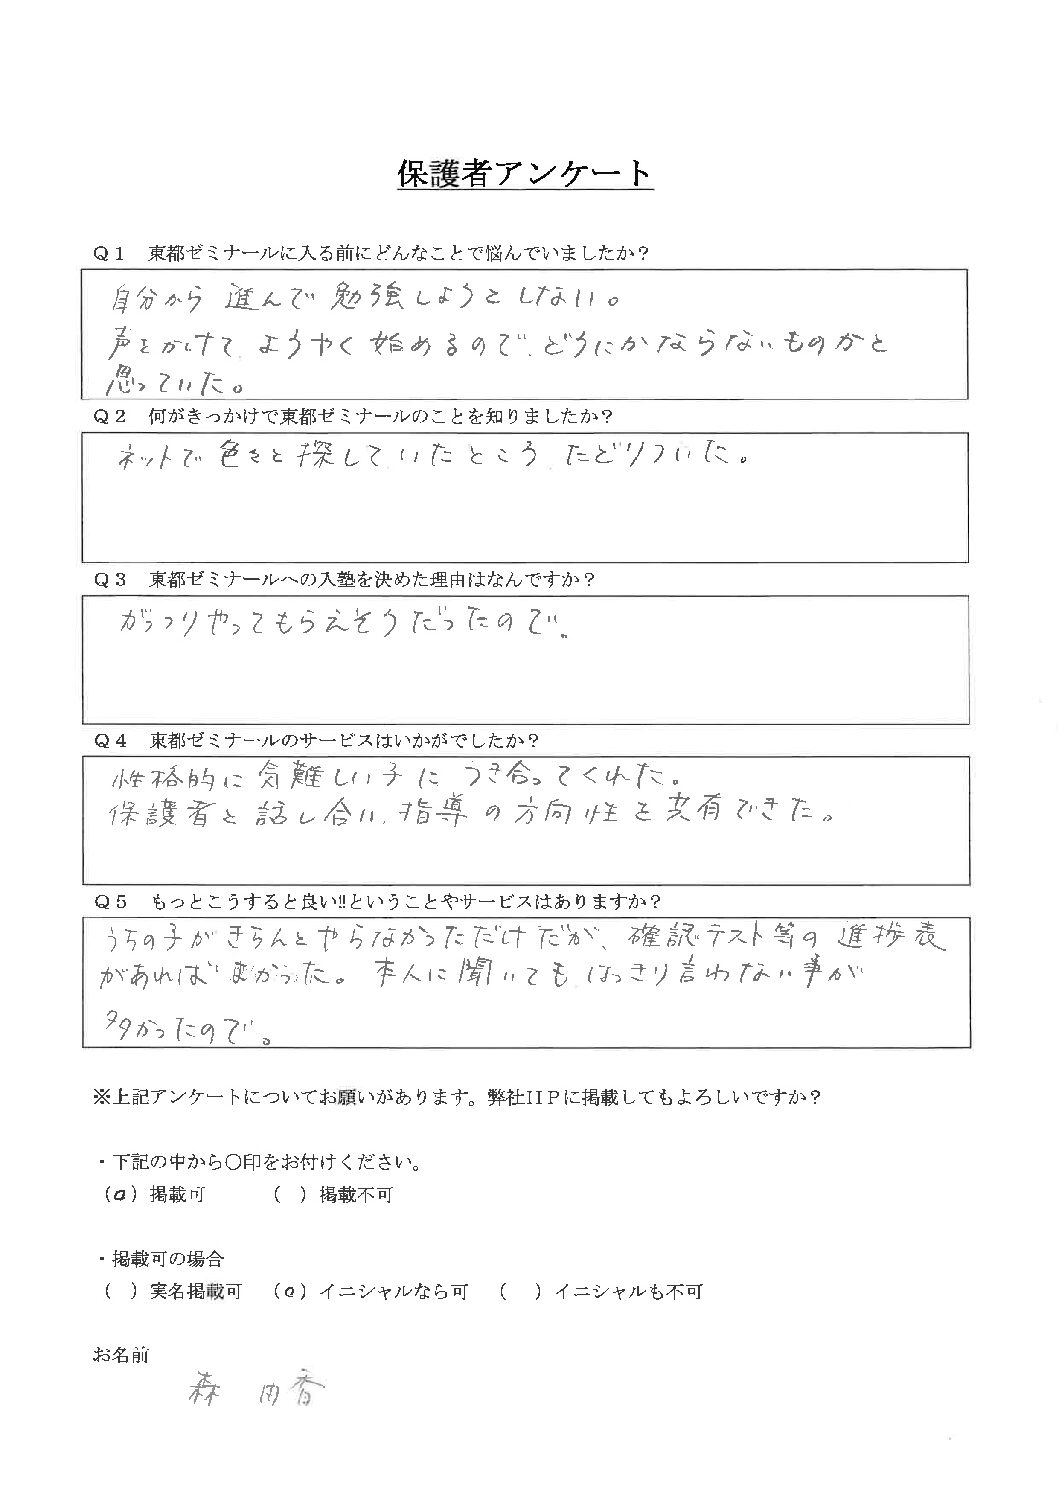 保護者アンケート
Q1 東都ゼミナールに入る前にどんなことで悩んでいましたか?
自分から進んで勉強しようとしない。
声をかけて、ようやく始めるので、どうにかならないものかと
思っていた。
Q2 何がきっかけで東都ゼミナールのことを知りましたか?
ネットで色々と探していたところ、たどりついた。
Q3 東都ゼミナールへの入塾を決めた理由はなんですか?
がっつりやってもらえそうだったので。
Q4 東都ゼミナールのサービスはいかがでしたか?
性格的に気難しい子につき合ってくれた。
保護者と話し合い、指導の方向性を共有できた。
Q5 もっとこうすると良い!!ということやサービスはありますか?
うちの子がきちんとやらなかっただけだが、確認テスト等の進捗表
があればよかった。本人に聞いても、はっきり言わない事が
多かったので。
※上記アンケートについてお願いがあります。弊社HPに掲載してもよろしいですか?
・下記の中から〇印をお付けください。
(o)掲載可 ( )掲載不可
・掲載可の場合
( )実名掲載可 (o)イニシャルなら可 ( )イニシャルも不可
お名前
森 由香